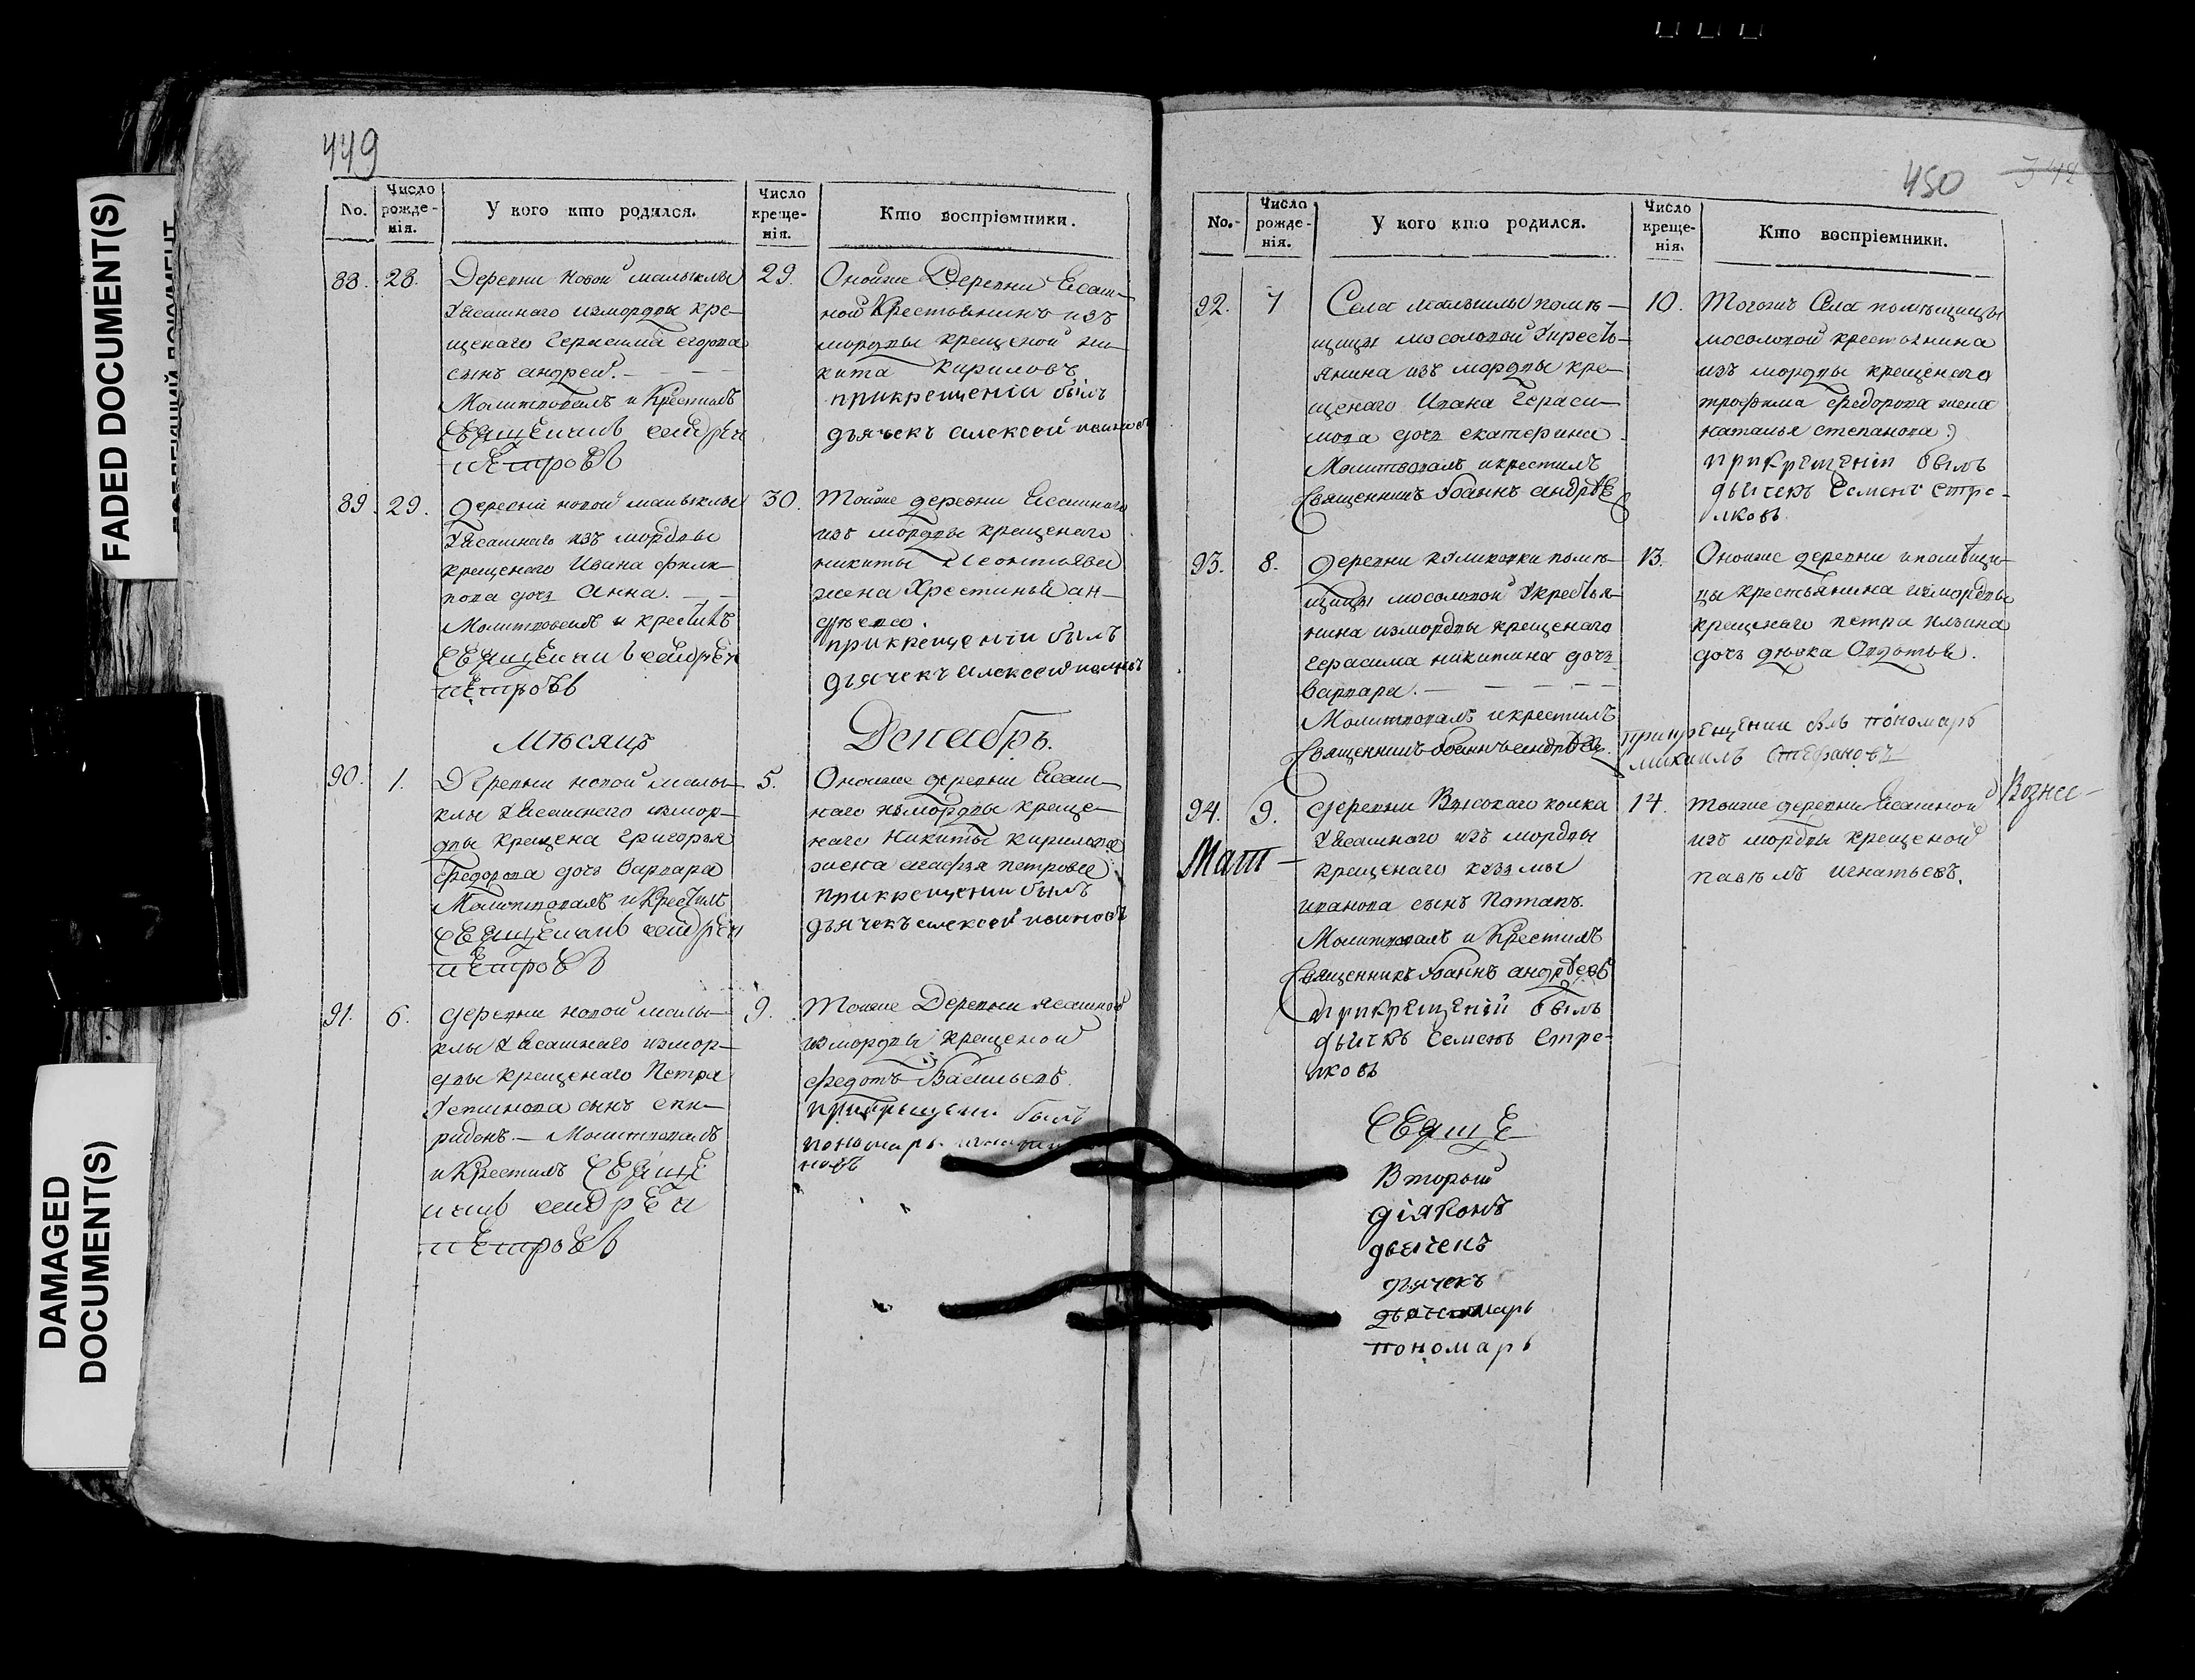 FADED DOCUMENT(S)
DAMAGED
DOCUMENT(S)
449
No.
Число
рожде-
нія.
У кого кто родился.
Число
креще-
нія.
Кто воспріемники.
88.
28.
Деревни новой малыклы
Уясашнаго измордвы кре-
щенаго Герасима егорова
сынъ андрей.
Молитвовалъ и крестилъ
Священникъ андрей
петровъ
29.
Оной же Деревни Ясаш-
ной Крестьянинъ изъ
мордвы крещеной ни-
кита кириловъ
прикрещеніи былъ
дьячекъ алексей ивановъ
89.
29.
деревни новой малыклы
Уясашнаго изъ мордвы
крещенаго Ивана фили-
пова дочь Анна.
Молитвовалъ и крестилъ
Священникъ андрей
петровъ
30.
Тойже деревни Ясашнаго
изъ мордвы крещенаго
никиты Леонтьева
жена Хрестинья ан-
дреева.
прикрещеніи былъ
дьячекъ алексей ивановъ
Мѣсяцъ
Декабрь.
90.
1.
Деревни новой малы-
клы Уясашнаго измор-
двы крещена григорья
федорова дочь варвара
Молитвовалъ и крестилъ
Священникъ андрей
петровъ
5.
Онойже деревни Ясаш-
наго измордвы креще-
наго Никиты кирилова
жена агафья петрова
прикрещении былъ
дьячекъ алексей ивановъ
91.
6.
деревни новой малы-
клы Уясашнаго измор-
двы крещенаго Петра
сынъ спи-
ридонъ. — Молитвовалъ
и крестилъ Свяще
никъ андрей
петровъ
9.
Тойже Деревни ясашной
измордвы крещеной
федотъ Васильевъ.
прикрещении былъ
пономарь
новъ
450
342
No.
Число
рожде-
нія.
У кого кто родился.
Число
креще-
нія.
Кто воспріемники.
92.
7
Села малыклы помѣ-
щицы мосоловой Укресть-
янина изъ мордвы кре-
щенаго Ивана Гераси-
мова дочь екатерина.
Молитвовалъ икрестилъ
Священникъ Іоаннъ андрѣе
10.
Тогожъ Села помѣщицы
мосоловой крестьянина
изъ мордвы крещенаго
трофима федорова жена
наталья степанова
прикрещеніи былъ
дьячекъ Семенъ Стре-
лковъ.
93.
8.
деревни куликовки помѣ-
щицы мосоловой Укрестья-
нина измордвы крещенаго
герасима никитина дочь
варвара.
Молитвовалъ икрестилъ
Священникъ Іоаннъ андрѣе
13.
Онойже деревни ипомѣщи-
цы крестьянина измордвы
крещенаго петра ильина
дочь дѣвка Овдотья.
прикрещении былъ пономарь
михаилъ Стефановъ
94.
9.
деревни Высокаго колка
Уясашнаго изъ мордвы
крещенаго кузмы
иванова сынъ Потапъ.
Молитвовалъ и Крестилъ
Священникъ Іоаннъ андрѣевъ
прикрещеніи былъ
дьячекъ Семенъ Стре-
лковъ
14.
тойже деревни Ясашной
изъ мордвы крещеной
павѣлъ игнатьевъ.
Вознес-
Мат-
Свяще
Вторый
діяконъ
дьячекъ
дьячекъ
пономарь